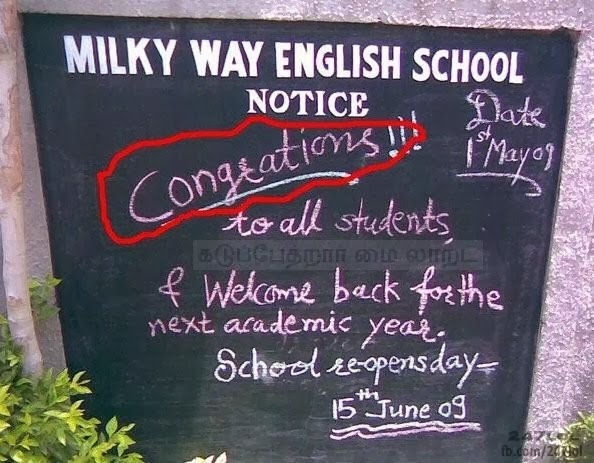 MILKY WAY ENGLISH SCHOOL
NOTICE
Date
1st May 09
Congrations!!!
to all students
கடுப்பேத்றார் மை லார்ட்
& Welcome back for the
next academic year.
School re-opens day=
15th June 09
247LOL
fb.com/247lol